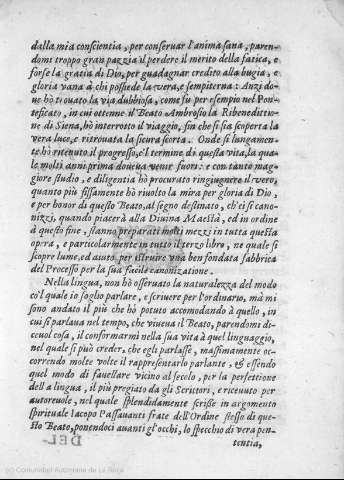 dalla mia conscientia, per conseruar l'anima sana, paren-
domi troppo gran pazzia il perdere il merito della fatica, e
forse la gratia di Dio, per guadagnar credito alla bugia, e
gloria vana à chi possiede la vera, e sempiterna: Anzi do-
ue hò trouato la via dubbiosa, come fù per esempio nel Pon-
teficato, in cui ottenne il Beato Ambrosio la Ribenedittio-
ne di Siena, hò interrotto il viaggio, fin che si sia scoperta la
vera luce, e ritrouata la sicura scorta. Onde sì lungamen-
te hò ritenuto il progresso, e'l termine di questa vita, la qua-
le molti anni prima doueua venir fuori: e con tanto mag-
giore studio, e diligentia hò procurato ringiugnere il vero,
quanto più fissamente hò riuolto la mira per gloria di Dio,
e per honor di questo Beato, al segno destinato, ch'ei si cano-
nizzi, quando piacerà alla Diuina Maestà, ed in ordine
à questo fine, stanno preparati molti mezzi in tutta questa
opera, e particolarmente in tutto il terzo libro, ne quali si
scopre lume, ed aiuto, per istruire vna ben fondata fabbrica
del Processo per la sua facile canonizatione.
Nella lingua, non hò osseruato la naturalezza del modo
co'l quale io soglio parlare, e scriuere per l'ordinario, mà mi
sono andato il più che hò potuto accomodando à quello, in
cui si parlaua nel tempo, che viueua il Beato, parendomi di-
ceuol cosa, il conformarmi nella sua vita à quel linguaggio,
nel quale si può creder, che egli parlasse, massimamente oc-
correndo molte volte il rappresentarlo parlante, & essendo
quel modo di fauellare vicino al secolo, per la perfettione
della lingua, il più pregiato da gli Scrittori, e riceuuto per
autoreuole, nel quale splendidamente scrisse in argomento
spirituale Iacopo Passauanti frate dell'Ordine stesso di que-
sto Beato, ponendoci auanti gl'occhi, lo specchio di vera pen-
tentia,
DEL-
(c) Comunidad Autónoma de La Rioja